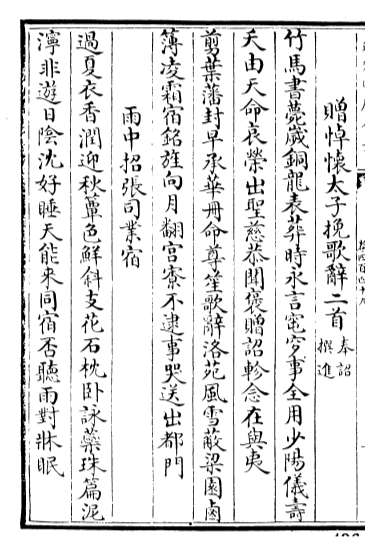 贈悼懷太子挽歌辭二首 奉詔撰進
竹馬書薨歲銅龍表葬時永言窀穸事全用少陽儀壽
夭由天命哀榮出聖慈恭聞褒贈詔軫念在與夷
剪葉藩封早承華冊命尊笙歌辭洛苑風雪蔽梁園鹵
薄凌霜宿銘旌向月翻宮寮不逮事哭送出都門
雨中招張司業宿
過夏衣香潤迎秋簟色鮮斜支花石枕卧詠藥珠篇泥
濘非遊日陰沈好睡天能來同宿否聽雨對牀眠